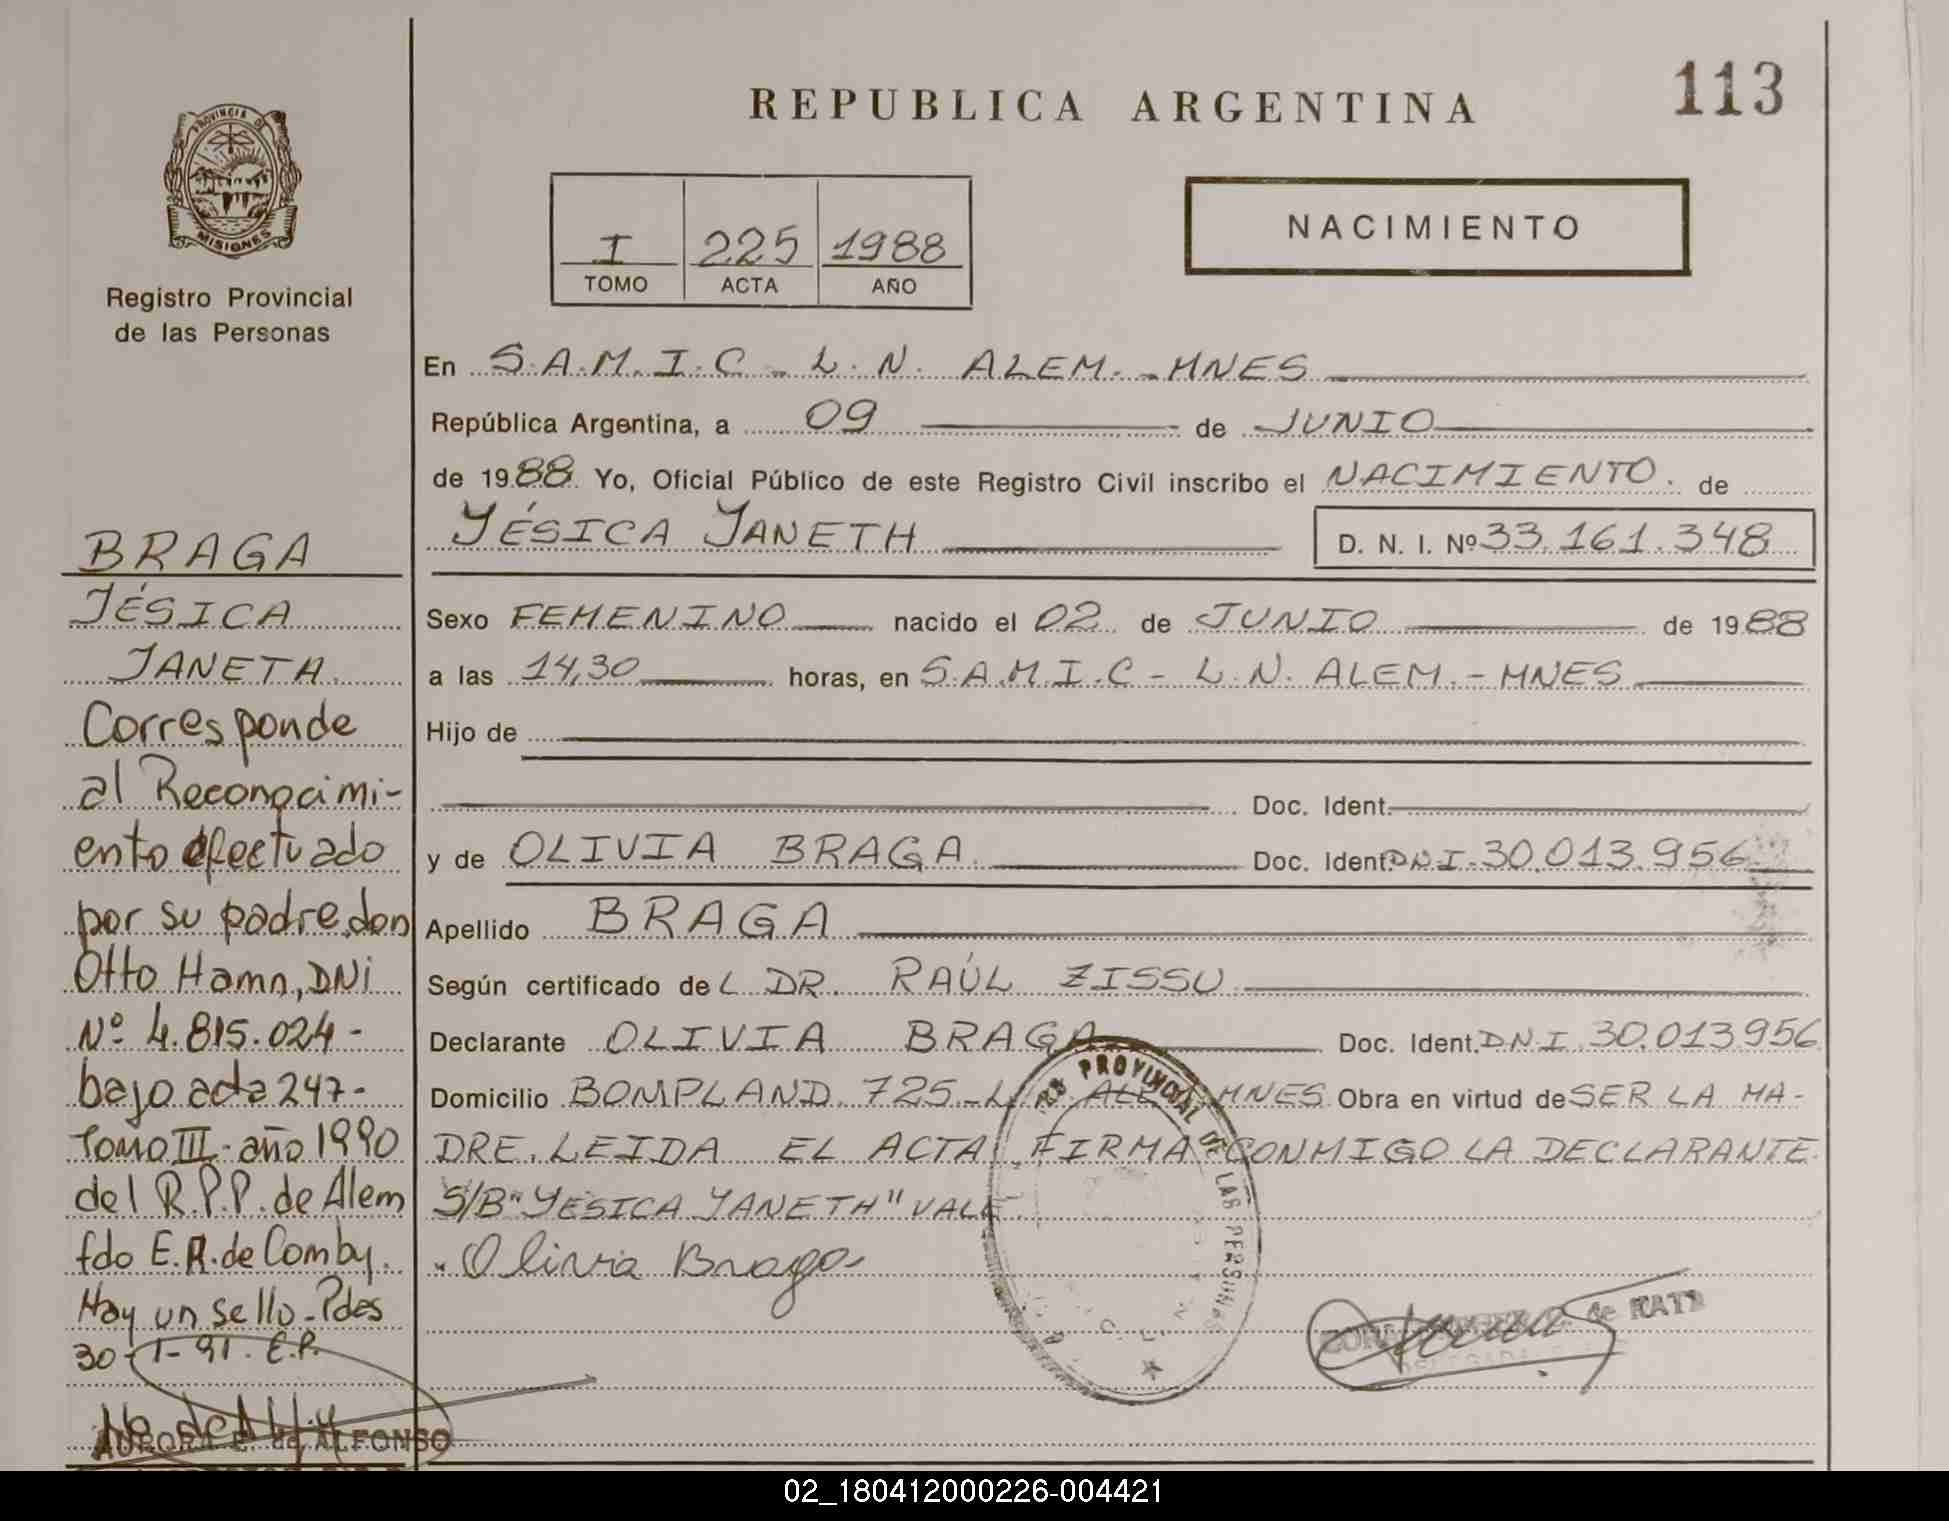 113
REPUBLICA ARGENTINA
PROVINCIA DE
MISIONES
Registro Provincial
de las Personas
NACIMIENTO
I 225 1988
TOMO ACTA AÑO
En S.A.M.I.C - L.N. ALEM. - MNES
República Argentina, a 09 de JUNIO
de 1988 Yo, Oficial Público de este Registro Civil inscribo el NACIMIENTO. de
YÉSICA YANETH D. N. I. Nº 33.161.348
Sexo FEMENINO nacido el 02 de JUNIO de 1988
a las 14,30 horas, en S.A.M.I.C - L.N. ALEM. - MNES
Hijo de
Doc. Ident.
y de OLIVIA BRAGA Doc. Ident. DNI. 30.013.956
Apellido BRAGA
Según certificado de L DR. RAÚL ZISSU
Declarante OLIVIA BRAGA Doc. Ident. DNI. 30.013956
Domicilio BOMPLAND. 725 - L.N. ALEM MNES. Obra en virtud de SER LA MA-
DRE. LEIDA EL ACTA FIRMA CONMIGO LA DECLARANTE.
S/B "YESICA YANETH" VALE.
Olivia Braga
PROVINCIAL DE LAS PERSONAS
de KATZ
BRAGA
JÉSICA
JANETA.
Corresponde
al Reconocimi-
ento efectuado
por su padre, don
Otto Hamn, DNi
Nº 4.815.024-
bajo acta 247-
Tomo III - año 1990
del R.P.P. de Alem
fdo E.R. de Comby.
Hay un sello - Pdas
30-1-91. E.P.
AURORA E. de ALFONSO
02_180412000226-004421